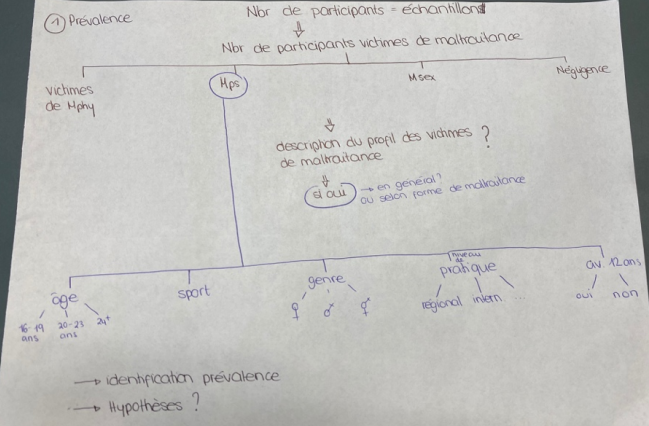 ① Prévalence
Nbr de participants = échantillon
Nbr de participants victimes de maltraitance
victimes
de Mphy
Mps
Msex
Négligence
description du profil des victimes ?
de maltraitance
→ en général?
ou selon forme de maltraitance
âge
16-19
ans
20-23
ans
24+
sport
genre
♀ ♂ ⚥
niveau
de
pratique
régional intern ...
av. 12 ans
oui non
→ identification prévalence
→ Hypothèses ?